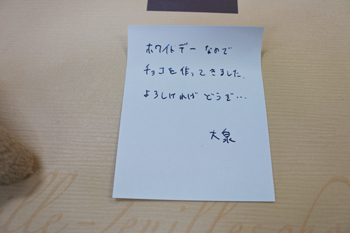 ホワイトデーなので
チョコを作ってきました。
よろしければどうぞ…
大泉